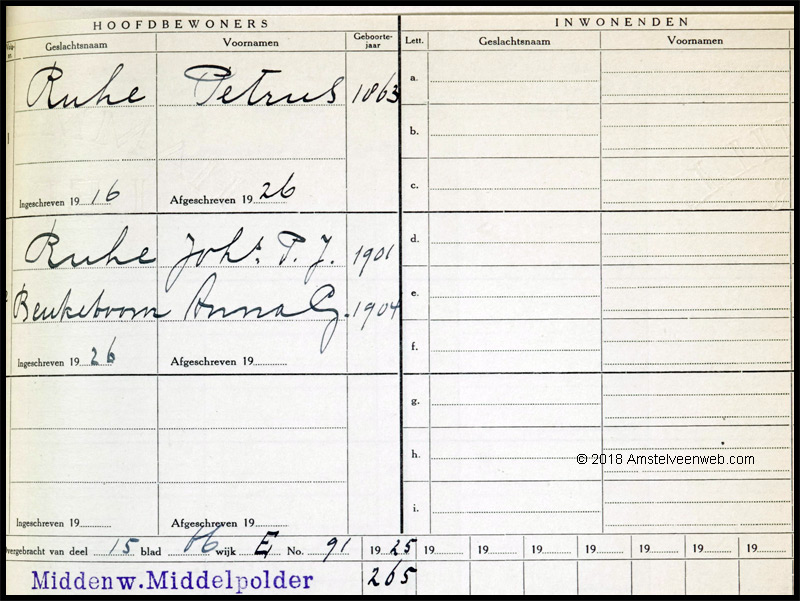 HOOFDBEWONERS INWONENDEN
Geslachtsnaam Voornamen Geboorte-jaar Lett. Geslachtsnaam Voornamen
Ruhe Petrus 1863 a.
b.
1
c.
Ingeschreven 19 16 Afgeschreven 19 26
Ruhe Joh.s P. J. 1901 d.
2 Beukeboom Anna G. 1904 e.
f.
Ingeschreven 19 26 Afgeschreven 19
g.
h.
© 2018 Amstelveenweb.com
i.
Ingeschreven 19 Afgeschreven 19
vergebracht van deel 15 blad wijk E No. 91 19 25 19 19 19 19 19 19 19
Middenw.Middelpolder 265